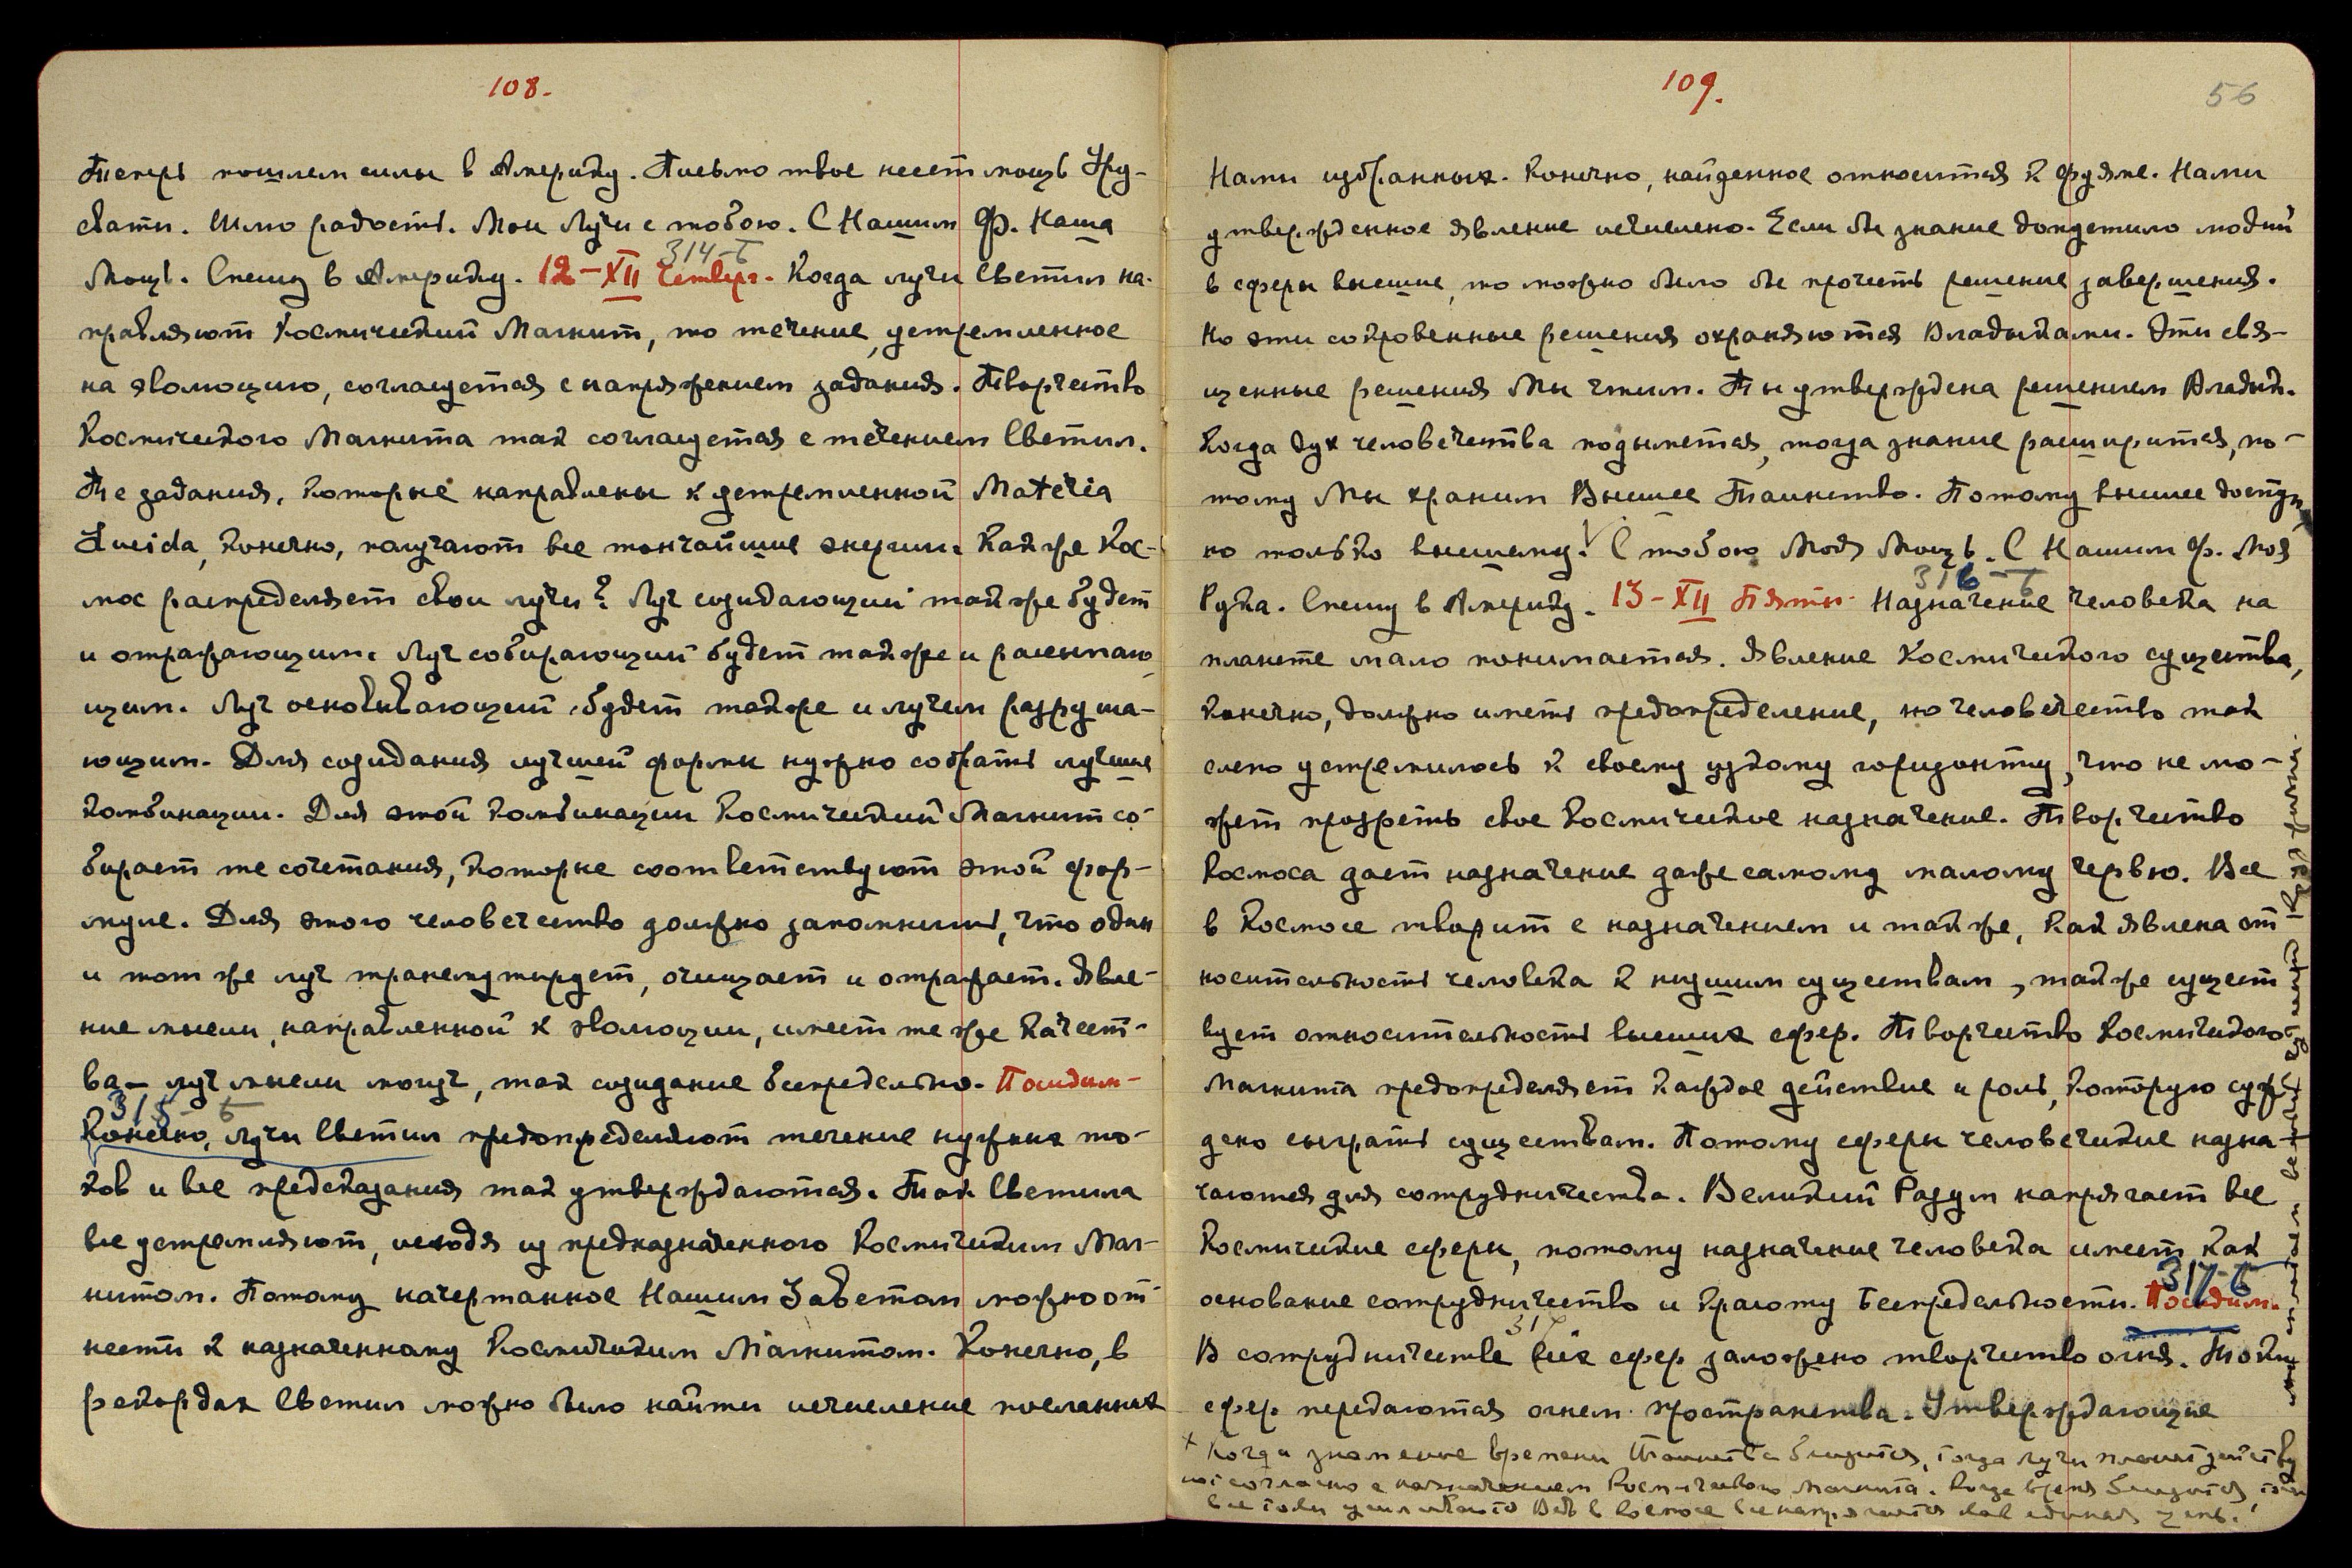 108.
Теперь пошлем силы в Америку. Письмо твое несет мощь Уру-
свати. Шлю радость. Мои Лучи с тобою. С Нашим Ф. Наша
314-Б
Мощь. Спешу в Америку. 12-XII Четверг. Когда лучи Светил на-
правляют Космический Магнит, то течение, устремленное
на эволюцию, согласуется с напряжением задания. Творчество
Космического Магнита так согласуется с течением Светил.
Те задания, которые направлены к устремленной Materia
Lucida, конечно, получают все тончайшие энергии. Как же Кос-
мос распределяет свои лучи? Луч созидающий также будет
и отражающим. Луч собирающий будет также и рассыпаю-
щим. Луч основывающий будет также и лучем разруша-
ющим. Для созидания лучшей формы нужно собрать лучшие
комбинации. Для этой комбинации Космический Магнит со-
бирает те сочетания, которые соответствуют этой фор-
муле. Для этого человечество должно запомнить, что один
и тот же луч трансмутирует, очищает и отражает. Явле-
ние мысли, направленной к эволюции, имеет те же качест-
ва — луч мысли могуч, так созидание беспредельно. Посидим-
315-Б
Конечно, лучи Светил предопределяют течение нужных то-
ков и все предсказания так утверждаются. Так Светила
все устремляют, исходя из предназначенного Космическим Маг-
нитом. Потому начертанное Нашим Заветом можно от-
нести к назначенному Космическим Магнитом. Конечно, в
рекордах Светил можно было найти исчисление посланных
109.
56
Нами избранных. Конечно, найденное относится к Фудяме. Нами
утвержденное явление исчислено. Если бы знание допустило людей
в сферы высшие, то можно было бы прочесть решение завершения.
Но эти сокровенные решения охраняются Владыками. Эти свя-
щенные решения Мы чтим. Ты утверждена решением Владык.
Когда дух человечества подымется, тогда знание расширится, по-
тому Мы храним Высшее Таинство. Потому высшее доступ-
но только высшему. С тобою Моя Мощь. С Нашим Ф. Моя
316-Б
Рука. Спешу в Америку. 13-XII Пятн. Назначение человека на
планете мало понимается. Явление Космического существа,
конечно, должно иметь предопределение, но человечество так
слепо устремилось к своему узкому горизонту, что не мо-
жет прозреть свое Космическое назначение. Творчество
Космоса дает назначение даже самому малому червю. Все
в Космосе творит с назначением и также, как явлена от
носительность человека к низшим существам, также сущест
вует относительность высших сфер. Творчество Космического
Магнита предопределяет каждое действие и роль, которую суж
дено сыграть существам. Потому сферы человеческие назна-
чаются для сотрудничества. Великий Разум напрягает все
Космические сферы, потому назначение человека имеет как
317-Б
основание сотрудничество и красоту Беспредельности. Посидим.
317
В сотрудничестве всех сфер заложено творчество огня. Токи
сфер передаются огнем пространства. Утверждающие
+ Когда знамение времени близится, тогда лучи планет действу
ют согласно с назначением Космического Магнита. Когда время близится, тогда
все токи усиливают. Ведь в Космосе все напрягается как единая цепь.